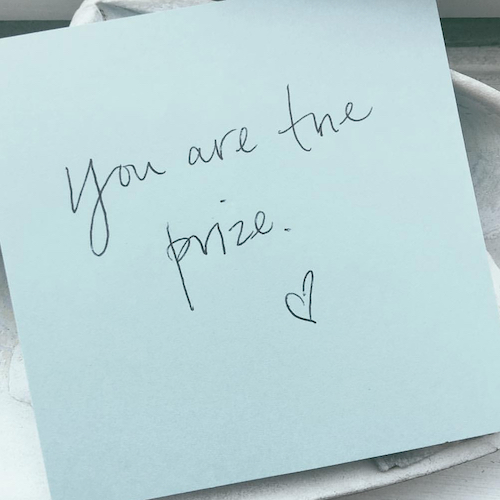 You are the
prize.
♡